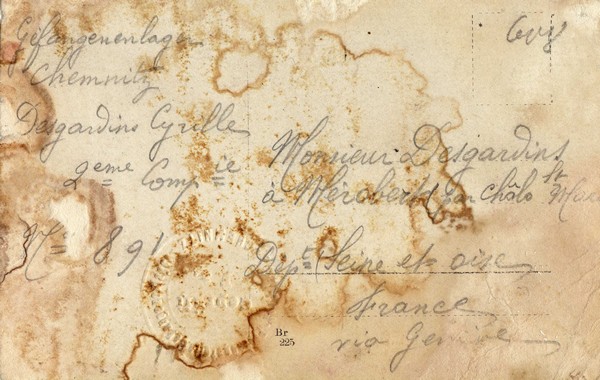 Gefangenenlager
Chemnitz
Desgardins Cyrille
2eme Compie
N= 891
Monsieur Desgardins
à Mérobert par Châlo St
Dept= Seine et oise
France
via Genève
Br
225